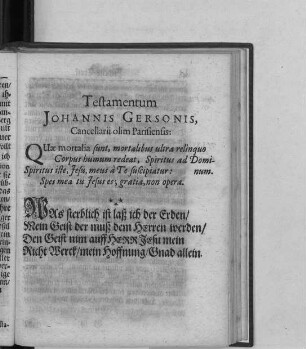 Testamentum
JOHANNIS GERSONIS,
Cancellarii olim Parisiensis:
QUæ mortalia sunt, mortalibus ultrà relinquo
Corpus humum redeat, Spiritus ad Domi-
Spiritus iste, Jesu, meus à Te suscipiatur: num.
Spes mea tu Jesus es; gratia, non opera.
WAs sterblich ist laß ich der Erden/
Mein Geist der muß dem HErren werden/
Den Geist nim auff HErr JEsu mein
Nicht Werck/mein Hoffnung/Gnad allein.